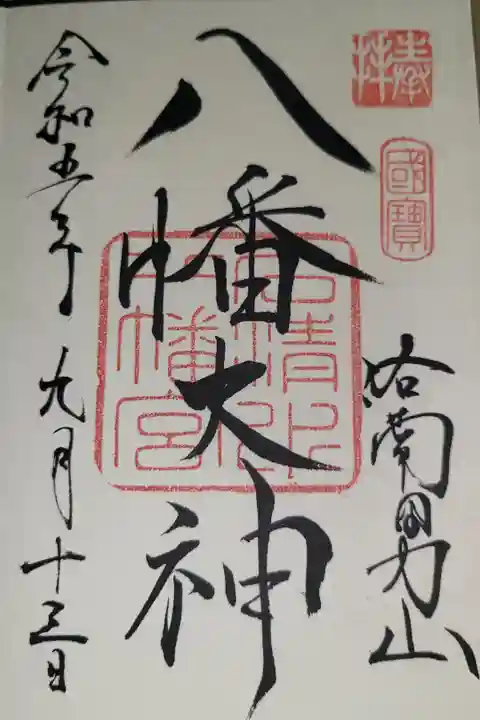 奉拝
國寶
洛南男山
八幡大神
石清水八幡宮
令和五年九月十三日